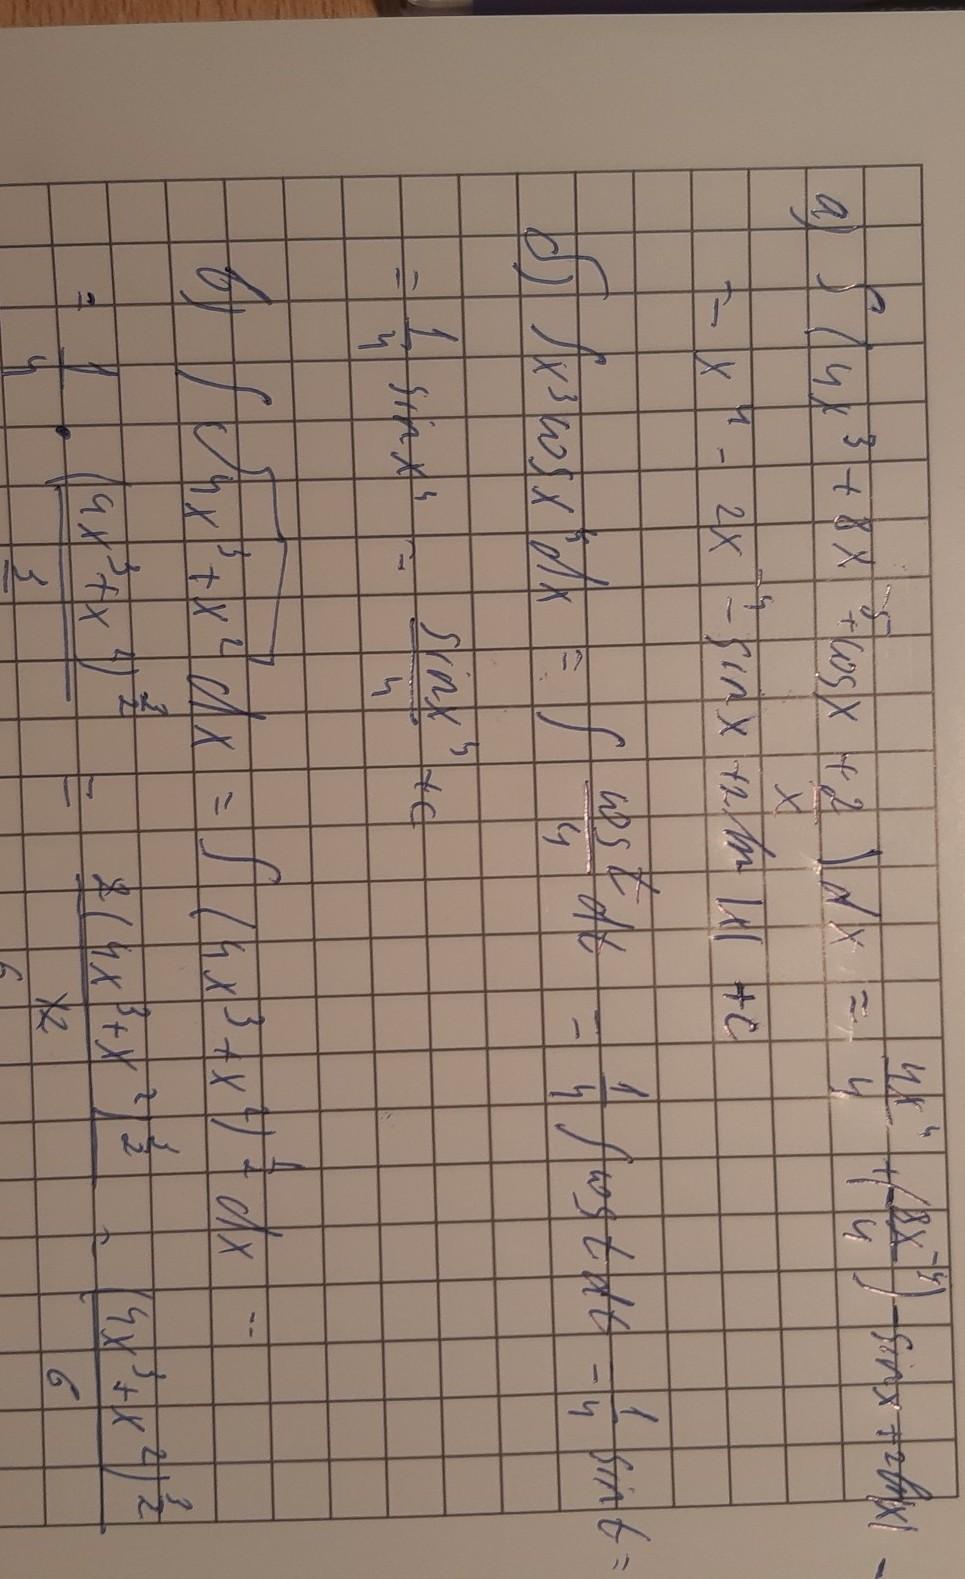 а) ∫ (4x³ + 8x⁻⁵ + cos x + 2/x) dx = 4x⁴/4 + (8x⁻⁴/4) - sin x + 2 ln|x| -
= x⁴ - 2x⁻⁴ - sin x + 2 ln |x| + c
б) ∫ x³ cos x⁴ dx = ∫ cos t/4 dt = 1/4 ∫ cos t dt = 1/4 sin t =
= 1/4 sin x⁴ = sin x⁴/4 + c
в) ∫ √(4x³ + x²) dx = ∫ (4x³ + x²)^(1/2) dx =
= 1/4 · (4x³ + x²)^(3/2)/3 = 2(4x³ + x²)^(3/2)/12 = (4x³ + x²)^(3/2)/6